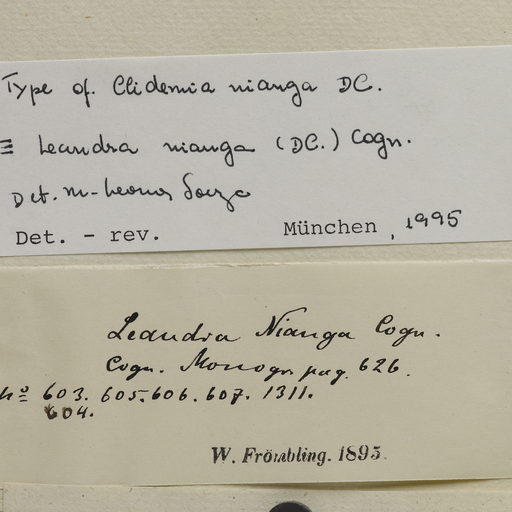 Type of Clidemia nianga DC.
≡ Leandra nianga (DC.) Cogn.
Det. M-Leonor Souza
Det. - rev. München, 1995
Leandra Nianga Cogn.
Cogn. Monogr pag. 626.
No 603. 605. 606. 607. 1311.
604.
W. Frömbling. 1895.